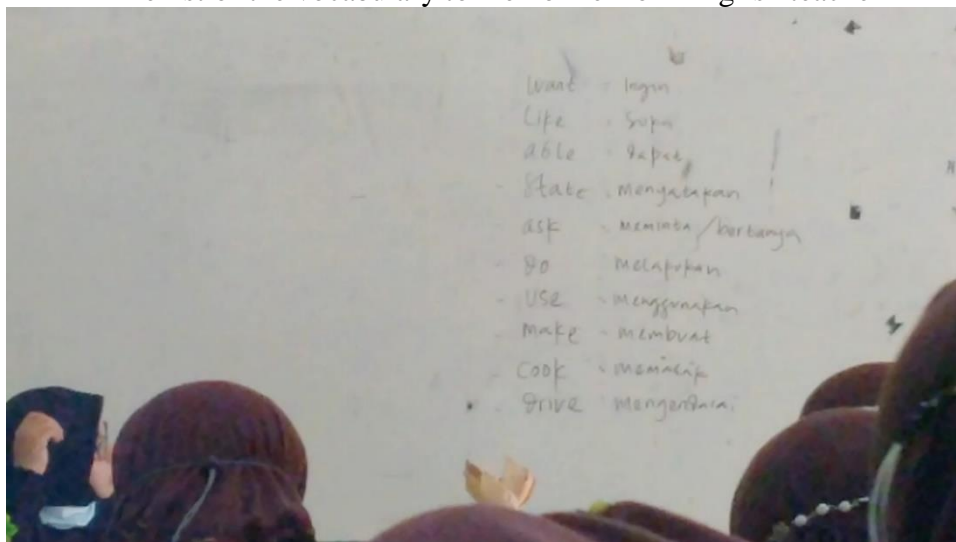 want - Ingin
Like - Suka
able - dapat
- State - menyatakan
ask - meminta / bertanya
- do melakukan
- use - menggunakan
- make - membuat
- cook - memasak
- drive mengendarai